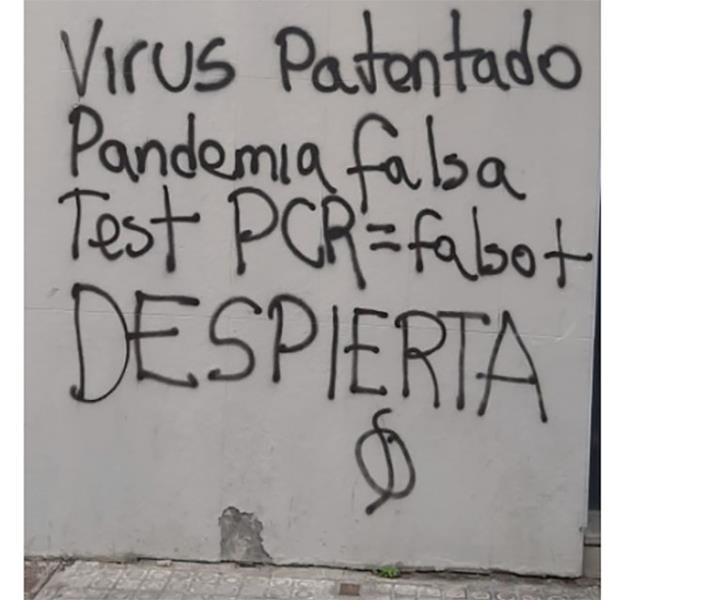 Virus Patentado
Pandemia falsa
Test PCR=falso+
DESPIERTA